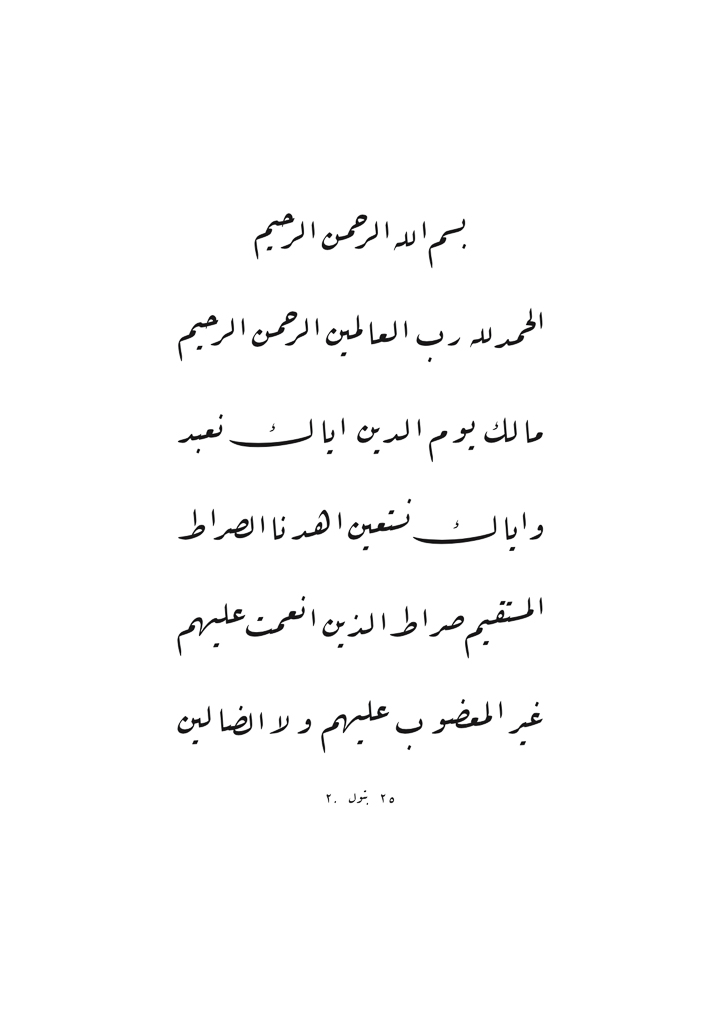 بسم الله الرحمن الرحيم
الحمد لله رب العالمين الرحمن الرحيم
مالك يوم الدين اياك نعبد
واياك نستعين اهدنا الصراط
المستقيم صراط الذين انعمت عليهم
غير المعضوب عليهم ولا الضالين
٢٥ ٢٠